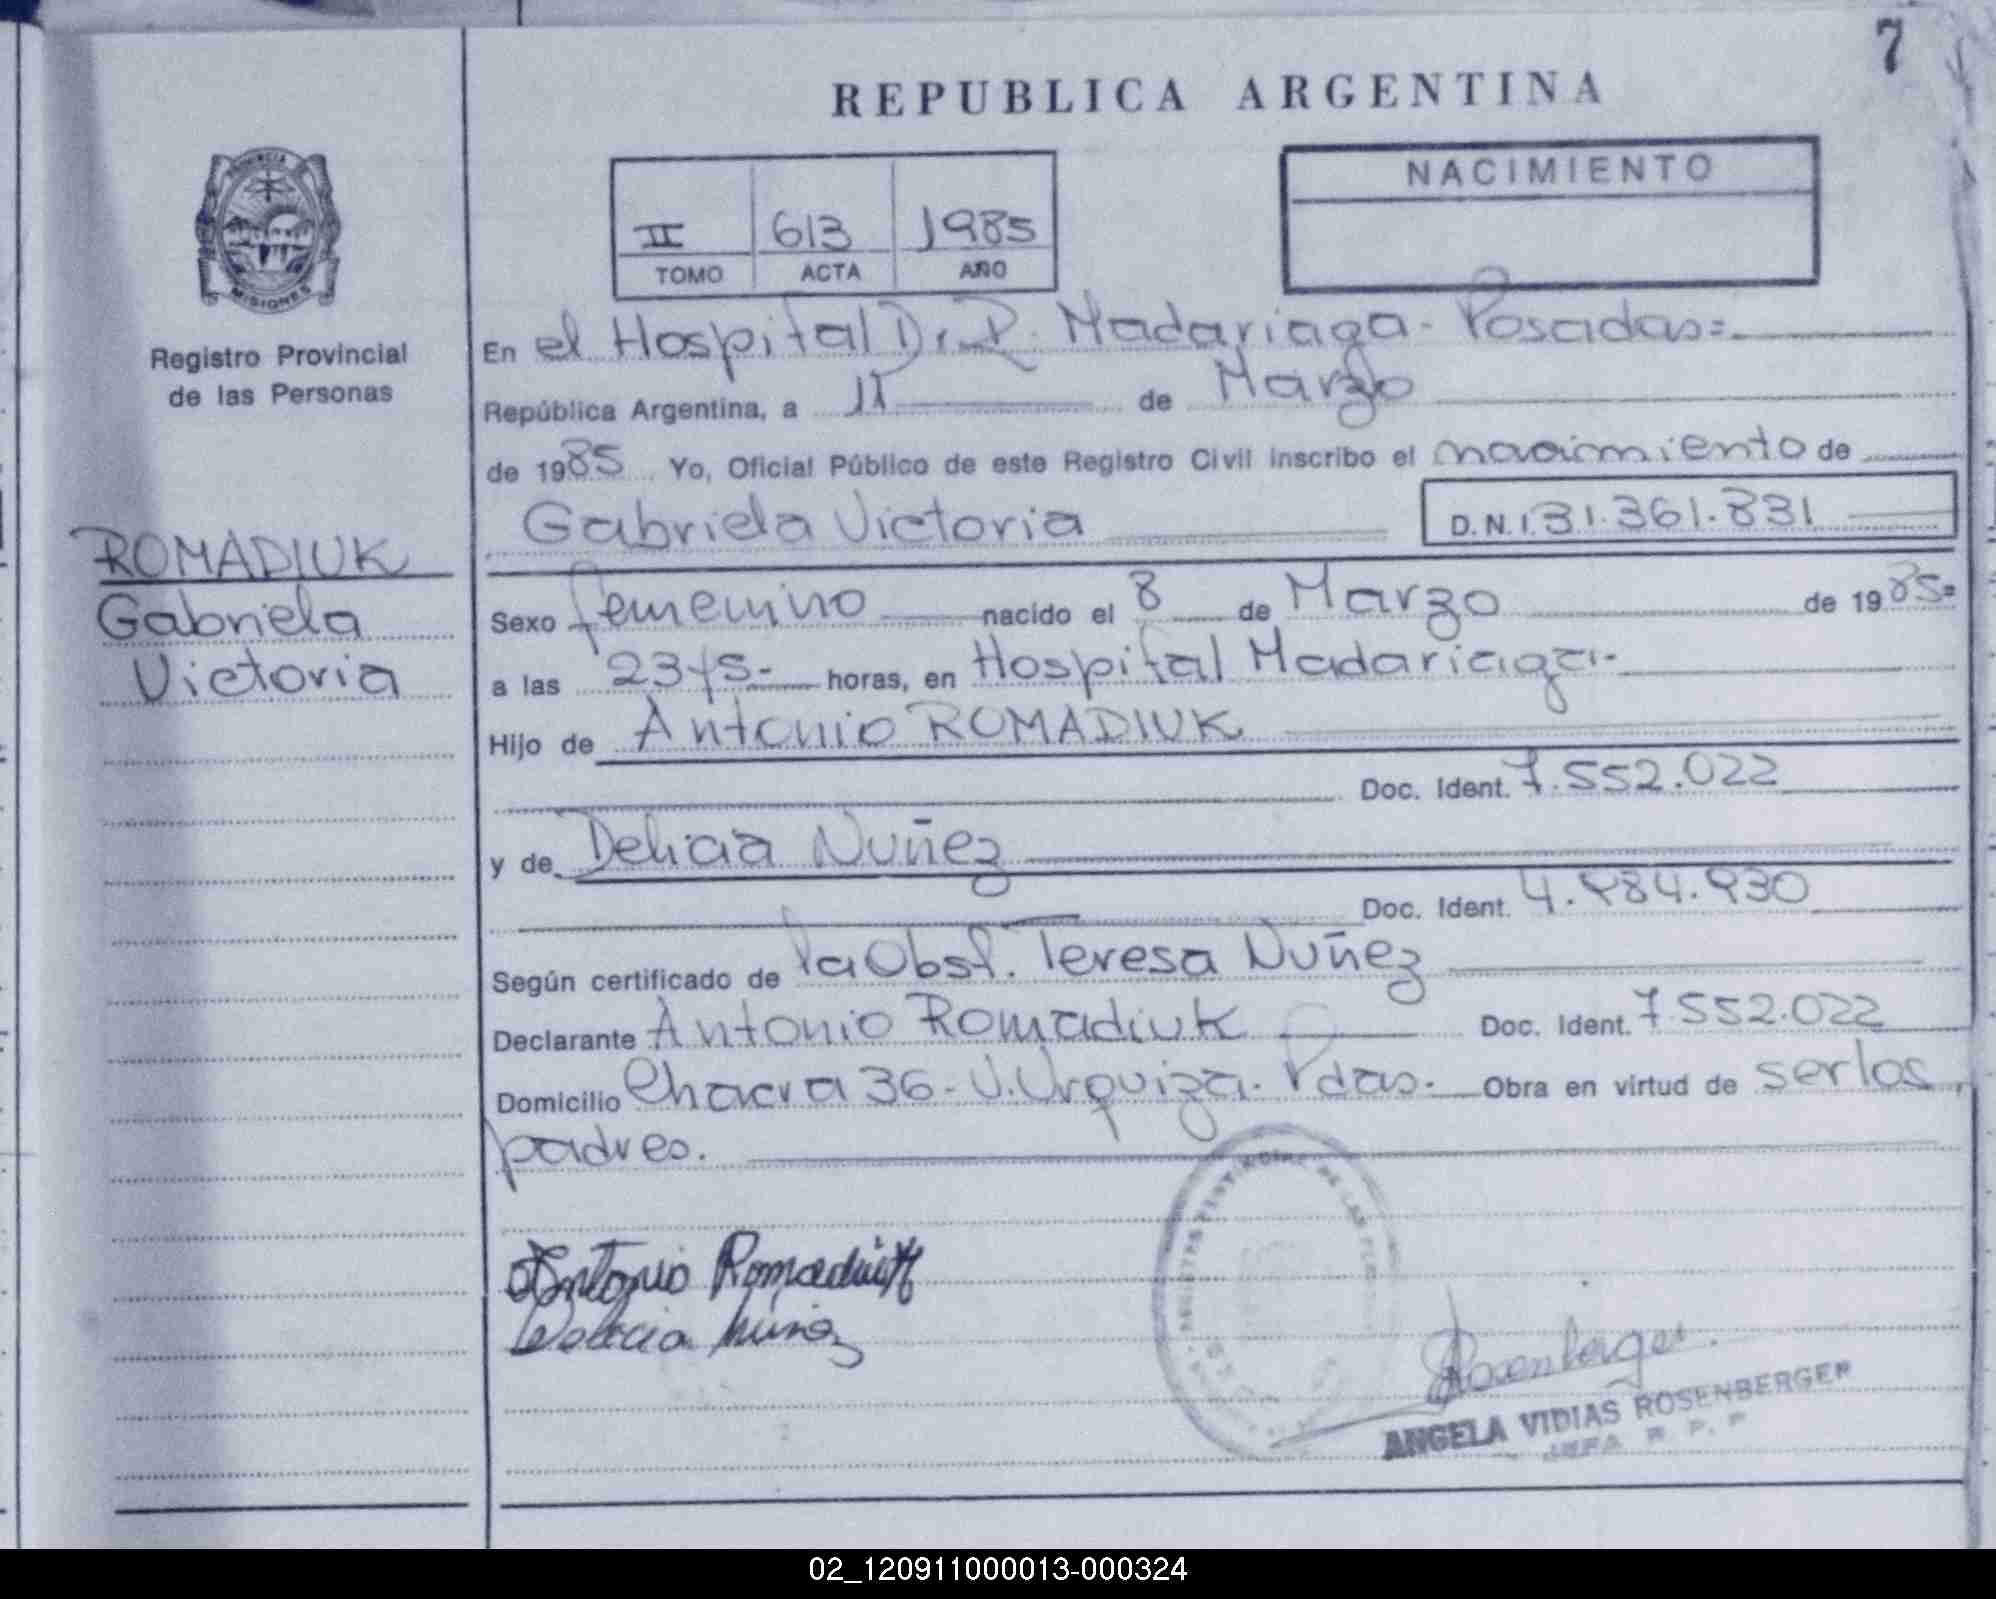 7
REPUBLICA ARGENTINA
NACIMIENTO
II 613 1985
TOMO ACTA AÑO
MISIONES
Registro Provincial
de las Personas
ROMADIUK
Gabriela
Victoria
En el Hospital Dr. R. Madariaga - Posadas=
República Argentina, a 11 de Marzo
de 1985 Yo, Oficial Público de este Registro Civil inscribo el nacimiento de
Gabriela Victoria D.N.I. 31.361.831
Sexo femenino nacido el 8 de Marzo de 1985=
a las horas, en Hospital Madariaga-
Hijo de Antonio ROMADIUK
Doc. Ident. 7.552.022
y de Delicia Nuñez
Doc. Ident. 4.984.930
Según certificado de la Obst. Teresa Nuñez
Declarante Antonio Romadiuk Doc. Ident. 7.552.022
Domicilio Chacra 36 - V. Urquiza. Pdas. Obra en virtud de ser los
padres.
Antonio Romadiuk
Delicia Nuñez
Rosenberger.
ANGELA VIDIAS ROSENBERGER
JEFA R. P. P.
02_120911000013-000324